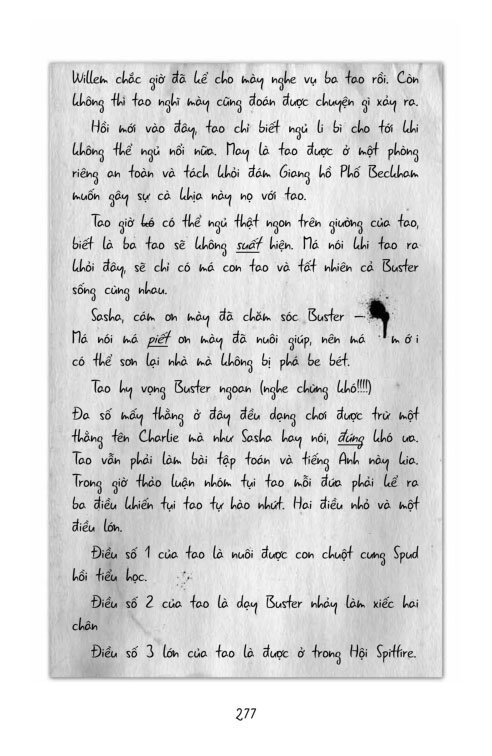 Willem chắc giờ đã kể cho mày nghe vụ ba tao rồi. Còn
không thì tao nghĩ mày cũng đoán được chuyện gì xảy ra.
Hồi mới vào đây, tao chỉ biết ngủ li bì cho tới khi
không thể ngủ nổi nữa. May là tao được ở một phòng
riêng an toàn và tách khỏi đám Giang hồ Phố Beckham
muốn gây sự cà khịa này nọ với tao.
Tao giờ kó có thể ngủ thật ngon trên giường của tao,
biết là ba tao sẽ không suất hiện. Má nói khi tao ra
khỏi đây, sẽ chỉ có má con tao và tất nhiên cả Buster
sống cùng nhau.
Sasha, cám ơn mày đã chăm sóc Buster –
Má nói má piết ơn mày đã nuôi giúp, nên má mới
có thể sơn lại nhà mà không bị phá be bét.
Tao hy vọng Buster ngoan (nghe chừng khó!!!!)
Đa số mấy thằng ở đây đều dạng chơi được trừ một
thằng tên Charlie mà như Sasha hay nói, đúng khó ưa.
Tao vẫn phải làm bài tập toán và tiếng Anh này kia.
Trong giờ thảo luận nhóm tụi tao mỗi đứa phải kể ra
ba điều khiến tụi tao tự hào nhứt. Hai điều nhỏ và một
điều lớn.
Điều số 1 của tao là nuôi được con chuột cưng Spud
hồi tiểu học.
Điều số 2 của tao là dạy Buster nhảy làm xiếc hai
chân
Điều số 3 lớn của tao là được ở trong Hội Spitfire.
277